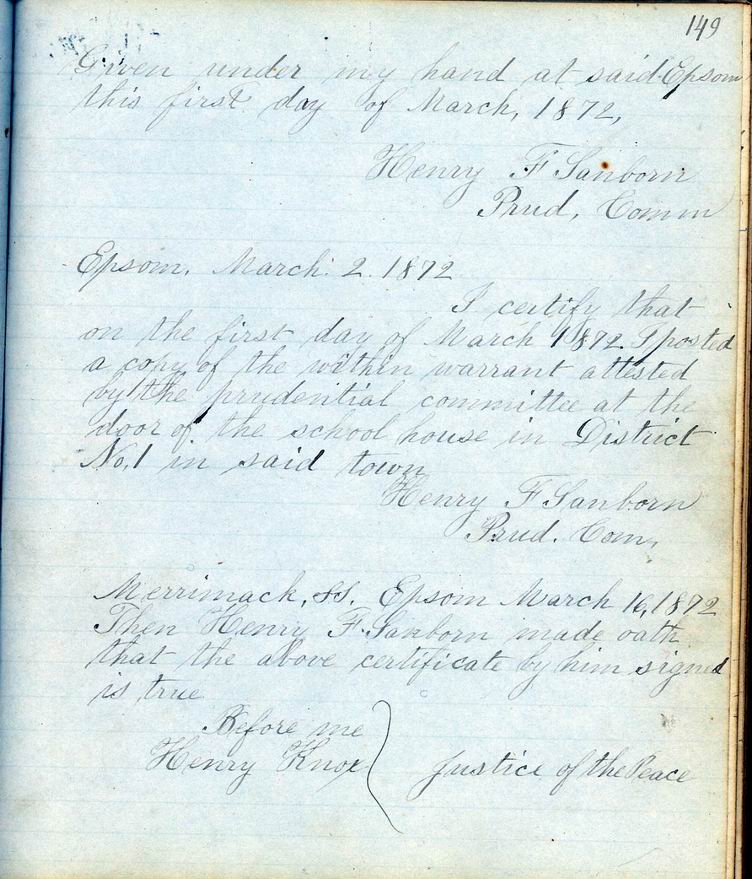 149
Given under my hand at said Epsom
this first day of March, 1872,
Henry F Sanborn
Prud, Comm
Epsom, March. 2. 1872
I certify that
on the first day of March 1872 I posted
a copy of the within warrant attested
by the prudential committee at the
door of the school house in District
No,1 in said town
Henry F Sanborn
Prud. Com,
Merrimack, SS. Epsom March 16, 1872
Then Henry F. Sanborn made oath
that the above certificate by him signed
is true
Before me
Henry Knox } Justice of the Peace